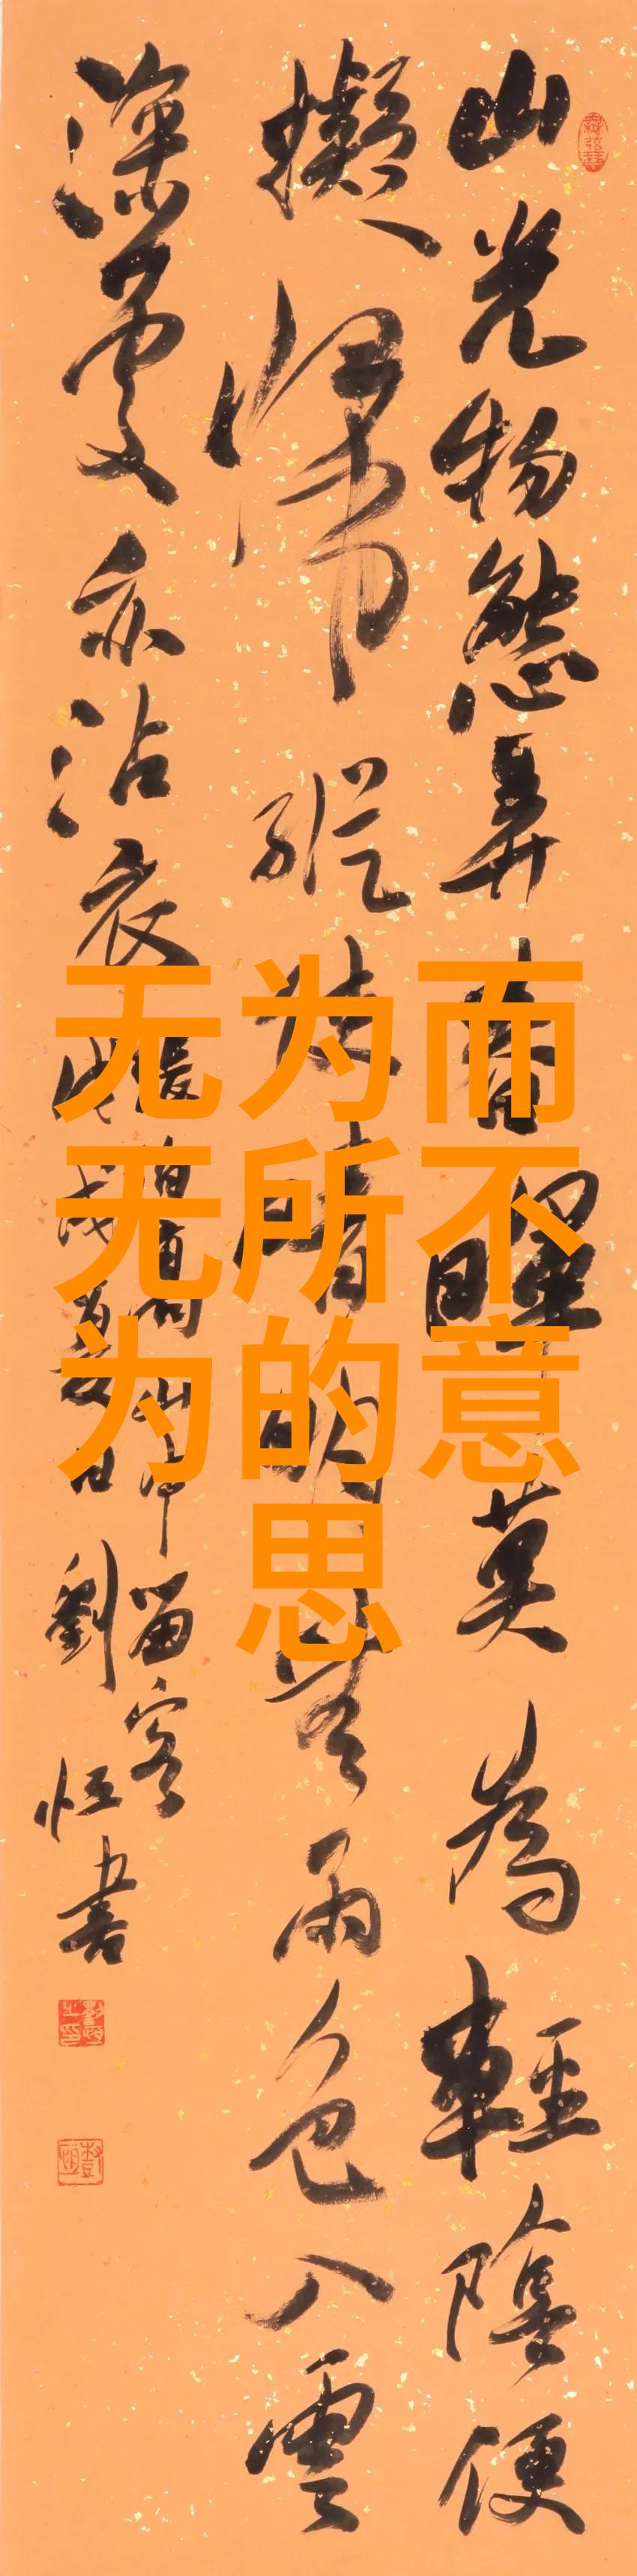 山光物態弄春暉莫為輕陰便
擬歸縱使晴明無雨色入雲
深處亦沾衣
山中留客
夏日劉恒書
无为而
无所不
为的意
思